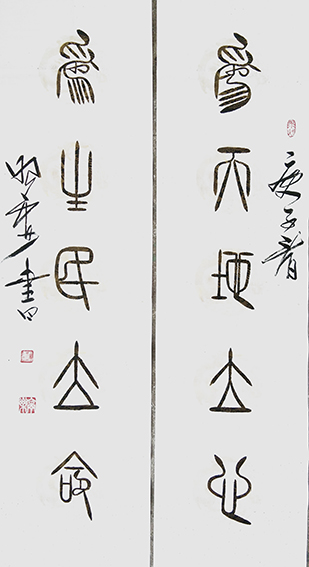 庚子春
為天地立心
為生民立命
書